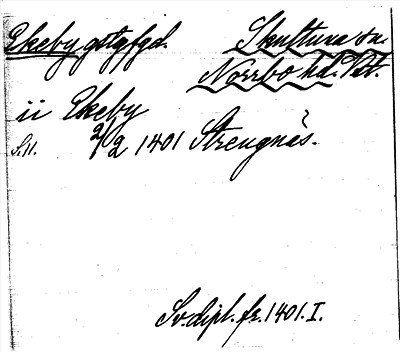 Ekeby gstgfgd. Skultuna sn.
Norrbo hd. Vst.
ii Ekeby
S. 11. 2/2 1401 Strengnäs.
Sv. dipl. fr. 1401. I.